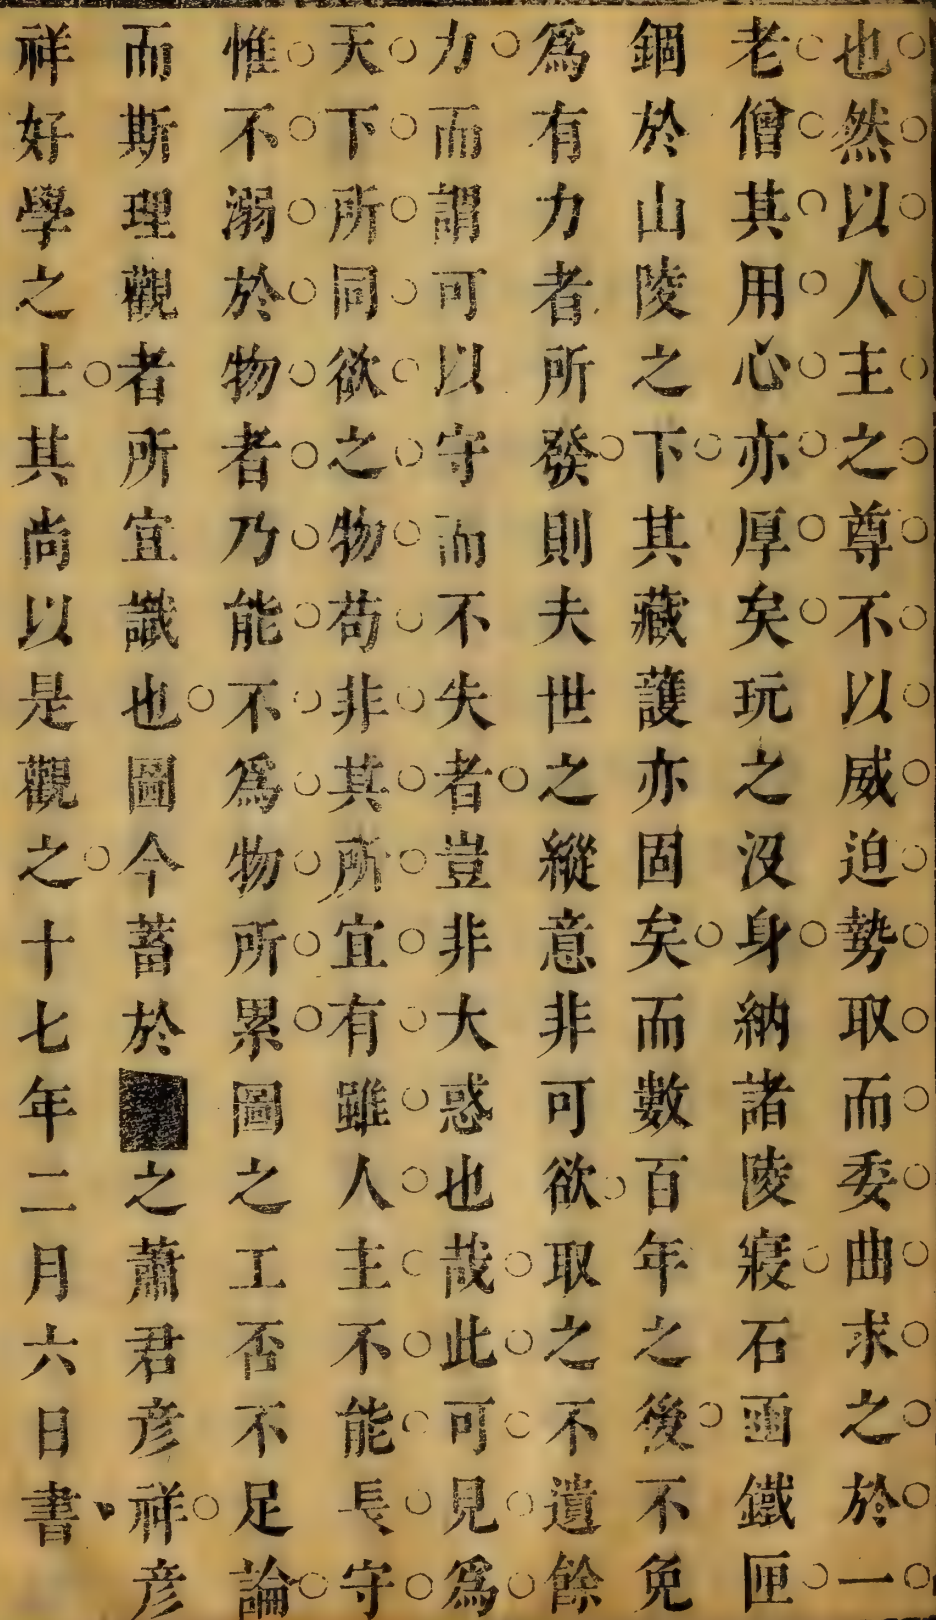 也然以人主之尊不以威迫勢取而委曲求之於一
老僧其用心亦厚矣玩之沒身納諸陵寢石函鐵匣
錮於山陵之下其藏護亦固矣而數百年之後不免
爲有力者所發則夫世之縱意非可欲取之不遺餘
力而謂可以守而不失者豈非大惑也哉此可見爲
天下所同欲之物苟非其所宜有雖人主不能長守
惟不溺於物者乃能不爲物所累圖之工否不足論
而斯理觀者所宜識也圖今蓄於之蕭君彦祥彦
祥好學之士其尚以是觀之十七年二月六日書